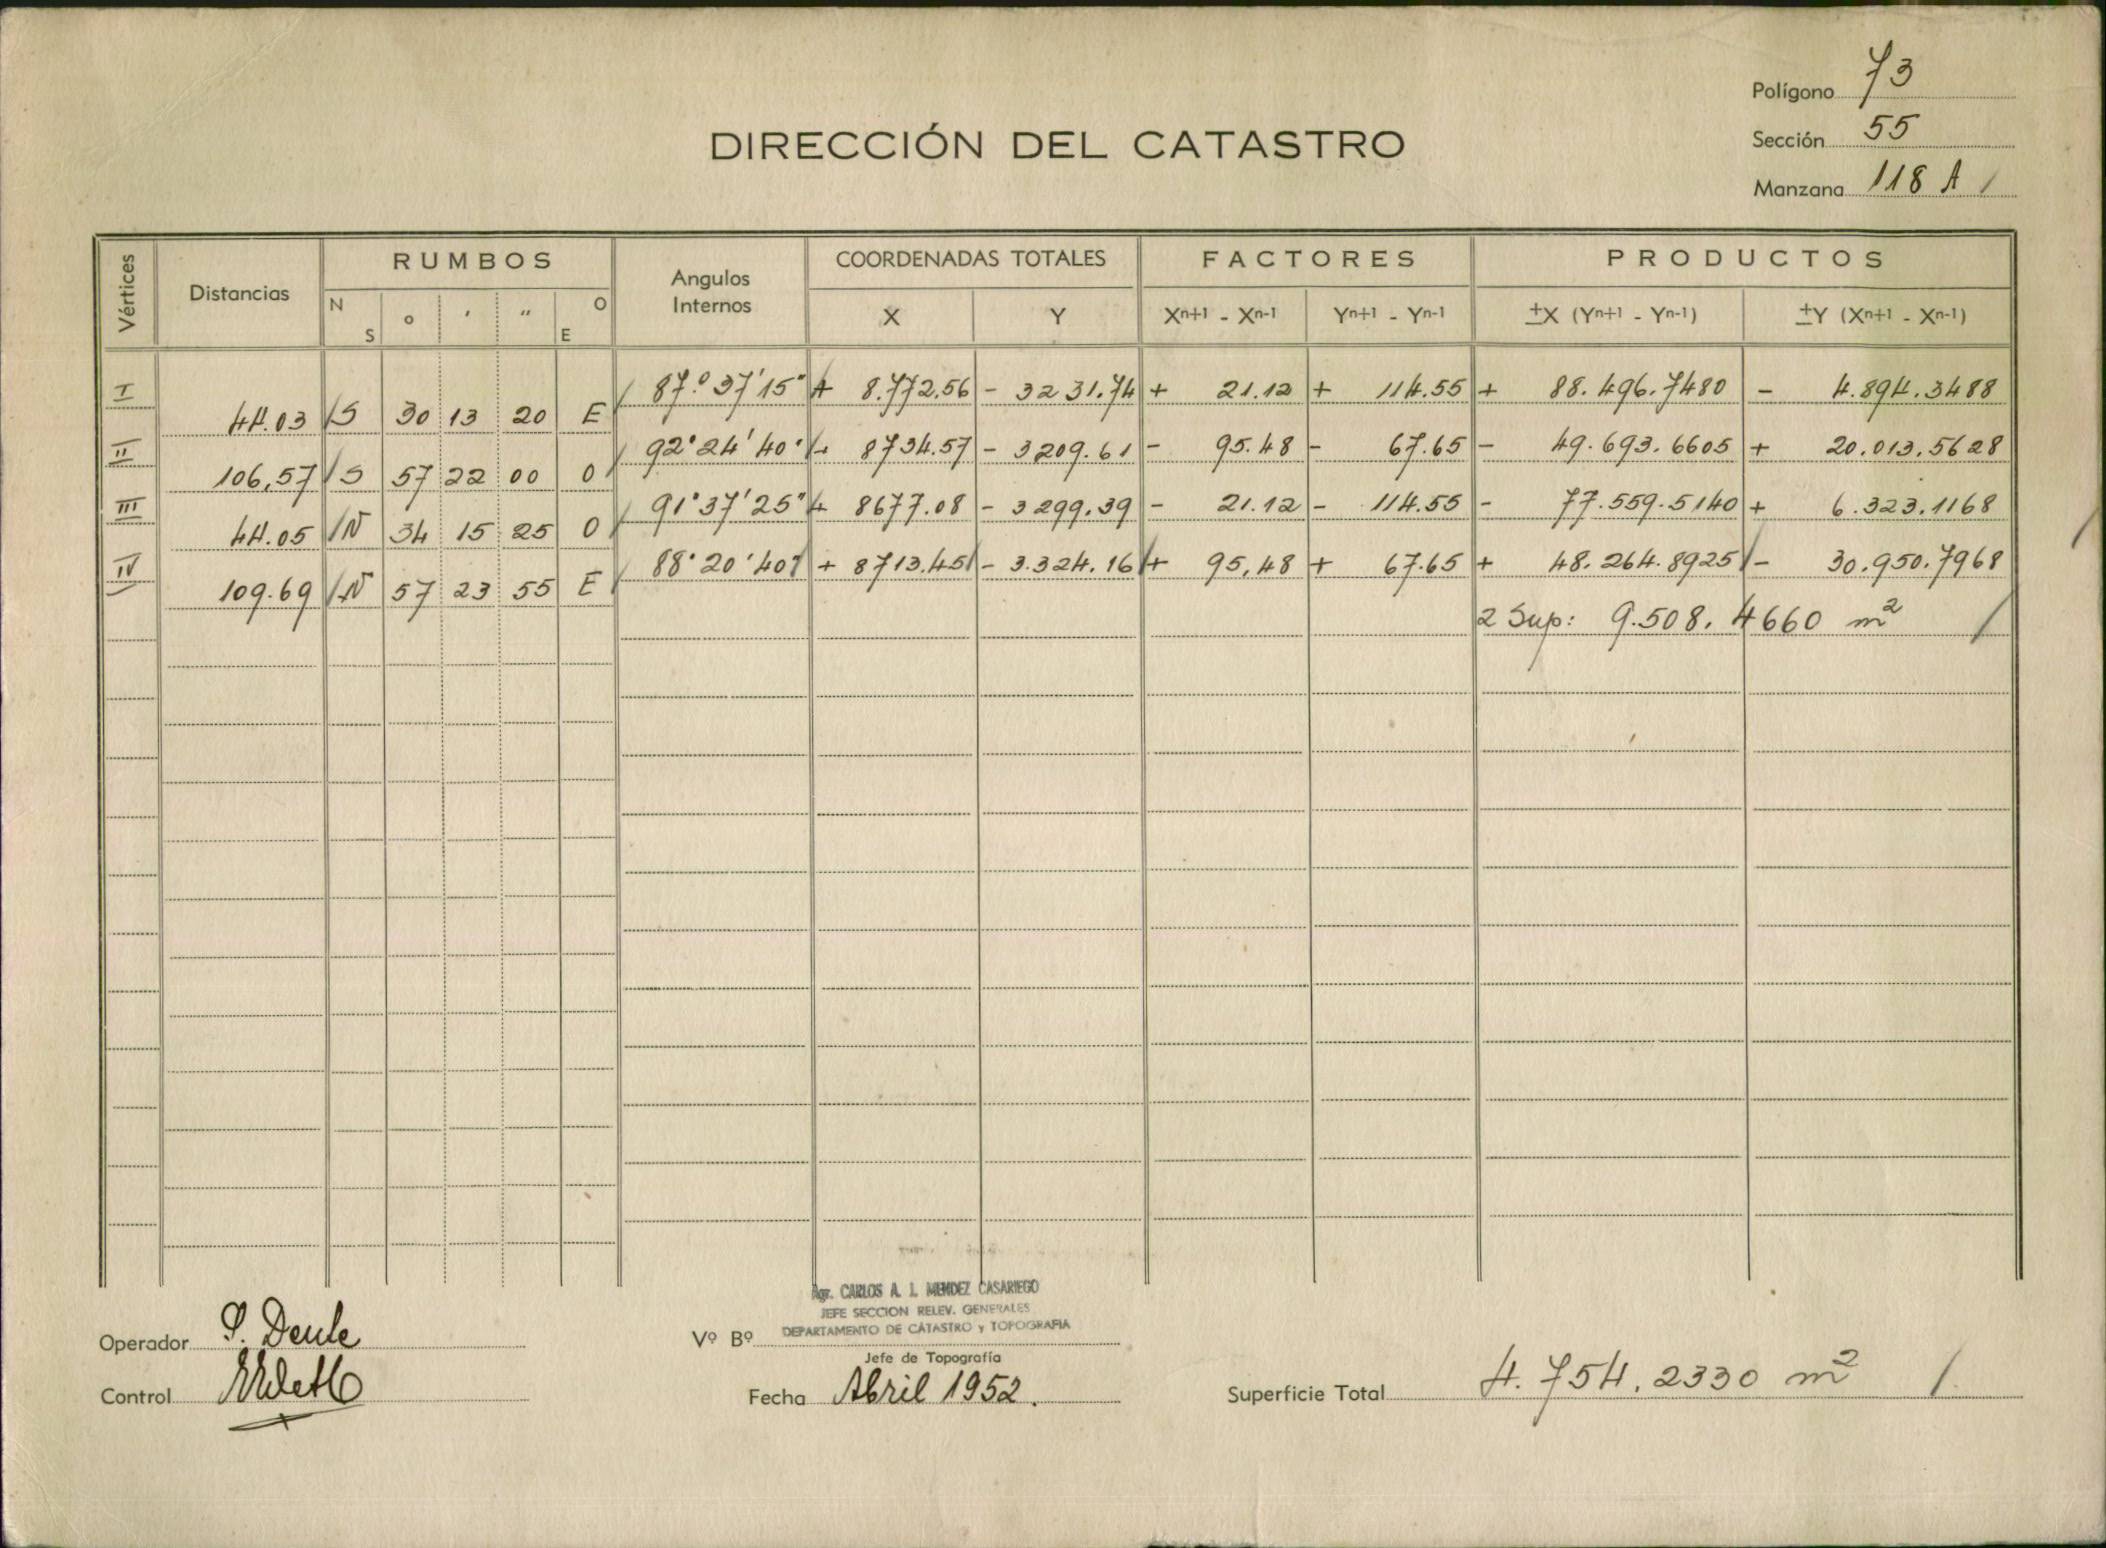 Polígono 73
DIRECCIÓN DEL CATASTRO
Sección 55
Manzana 118 A /
Vértices Distancias RUMBOS Angulos Internos COORDENADAS TOTALES FACTORES PRODUCTOS
N S o ' " O E X Y Xn+1 - Xn-1 Yn+1 - Yn-1 ±X (Yn+1 - Yn-1) ±Y (Xn+1 - Xn-1)
I 87.º 37' 15" + 8.772.56 - 3231.74 + 21.12 + 114.55 + 88.496.7480 - 4.894.3488
44.03 /S 30 13 20 E /
II 92° 24' 40" + 8734.57 - 3209.61 - 95.48 - 67.65 - 49.693.6605 + 20.013.5628
106,57 /S 57 22 00 O /
III 91° 37' 25" + 8677.08 - 3299.39 - 21.12 - 114.55 - 77.559.5140 + 6.323.1168
44.05 /N 34 15 25 O /
IV 88° 20' 40" + 8713.45 / - 3.324.16 / + 95,48 + 67.65 + 48.264.8925 / - 30.950.7968
109.69 /N 57 23 55 E /
2 Sup: 9.508.4660 m² /
Agr. CARLOS A. I. MENDEZ CASARIEGO
JEFE SECCION RELEV. GENERALES
DEPARTAMENTO DE CATASTRO y TOPOGRAFIA
Operador
Vº Bº
Jefe de Topografía
Control
Fecha Abril 1952.
Superficie Total 4.754.2330 m² /